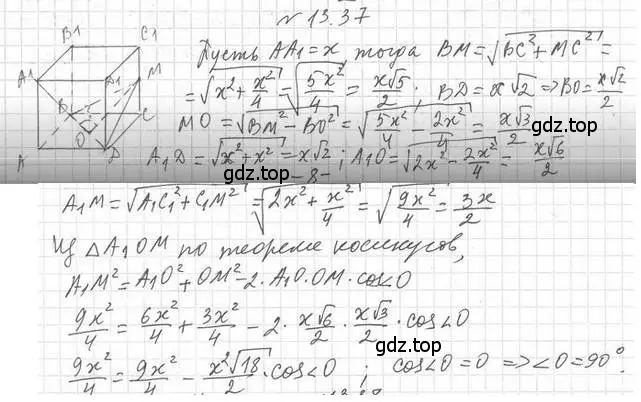 № 13.37
B1 C1
A1 D1 M
B C
O
A D
Пусть AA₁ = x, тогда BM = √(BC² + MC²) =
= √(x² + x²/4) = √(5x²/4) = x√5/2. BD = x√2 ⇒ BO = x√2/2
MO = √(BM² - BO²) = √(5x²/4 - 2x²/4) = x√3/2
gdz.top
A₁D = √(x² + x²) = x√2; A₁O = √(2x² - 2x²/4) = x√6/2
- 8 -
A₁M = √(A₁C₁² + C₁M²) = √(2x² + x²/4) = √(9x²/4) = 3x/2
gdz.top
Из △A₁OM по теореме косинусов,
A₁M² = A₁O² + OM² - 2·A₁O·OM·cos∠O
9x²/4 = 6x²/4 + 3x²/4 - 2·x√6/2·x√3/2·cos∠O
gdz.top
9x²/4 = 9x²/4 - x²√18/2·cos∠O; cos∠O = 0 ⇒ ∠O = 90°.